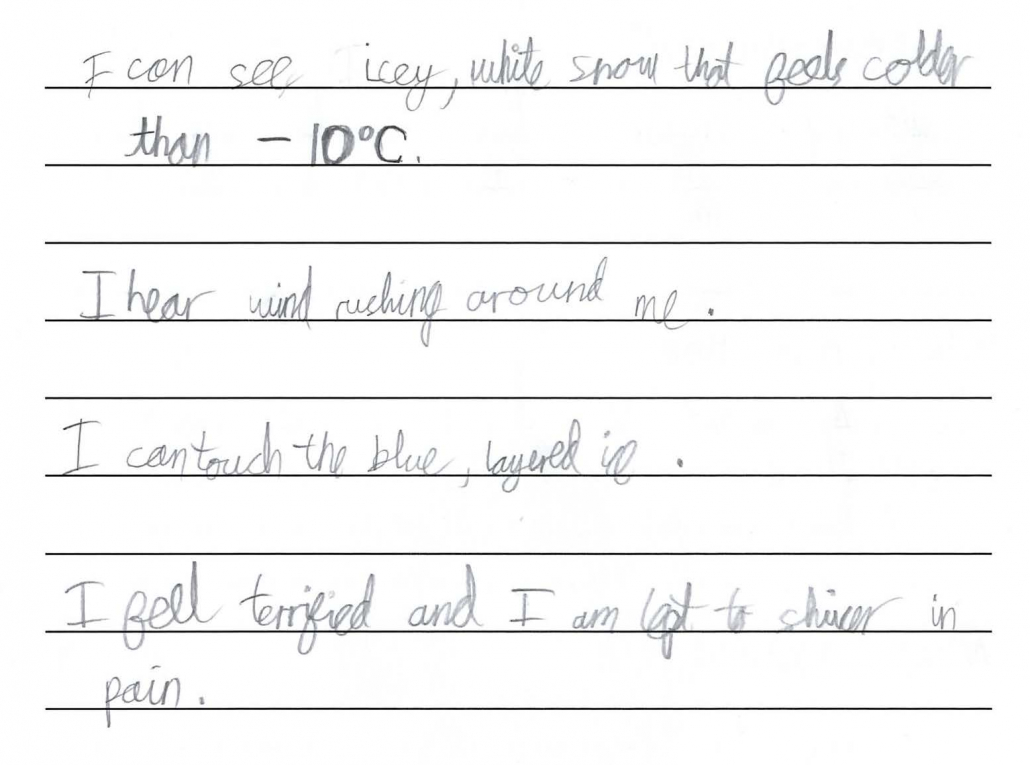 I can see icey, white snow that feels colder
than – 10°C.
I hear wind rushing around me.
I can touch the blue, layered ice.
I feel terrified and I am left to shiver in
pain.